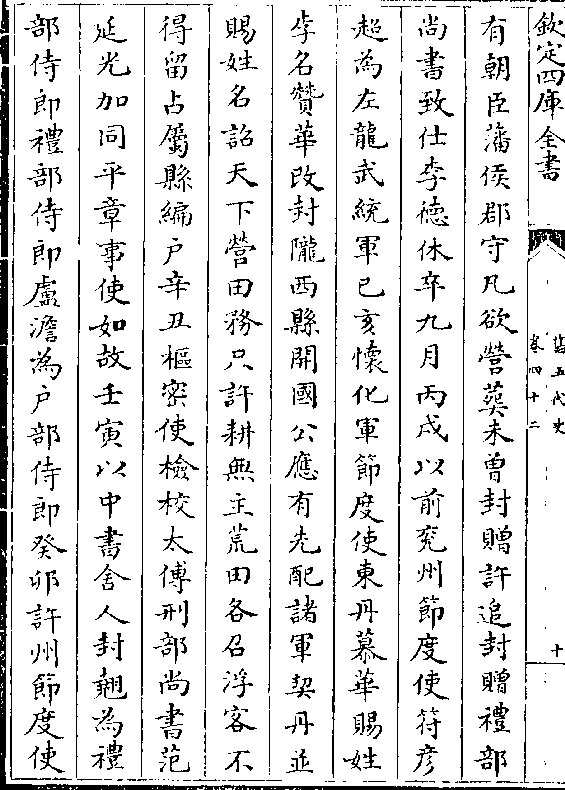 欽定四庫全書
舊五代史
卷四十二
十
有朝臣藩侯郡守凡欲營葬未曾封贈許追封贈禮部
尚書致仕李德休卒九月丙戌以前兖州節度使符彦
超為左龍武統軍已亥懷化軍節度使東丹慕華賜姓
李名贊華改封隴西縣開國公應有先配諸軍契丹並
賜姓名詔天下營田務只許耕無主荒田各召浮客不
得留占屬縣編户辛丑樞密使檢校太傅刑部尚書范
延光加同平章事使如故壬寅以中書舍人封翹為禮
部侍郎禮部侍郎盧澹為户部侍郎癸卯許州節度使